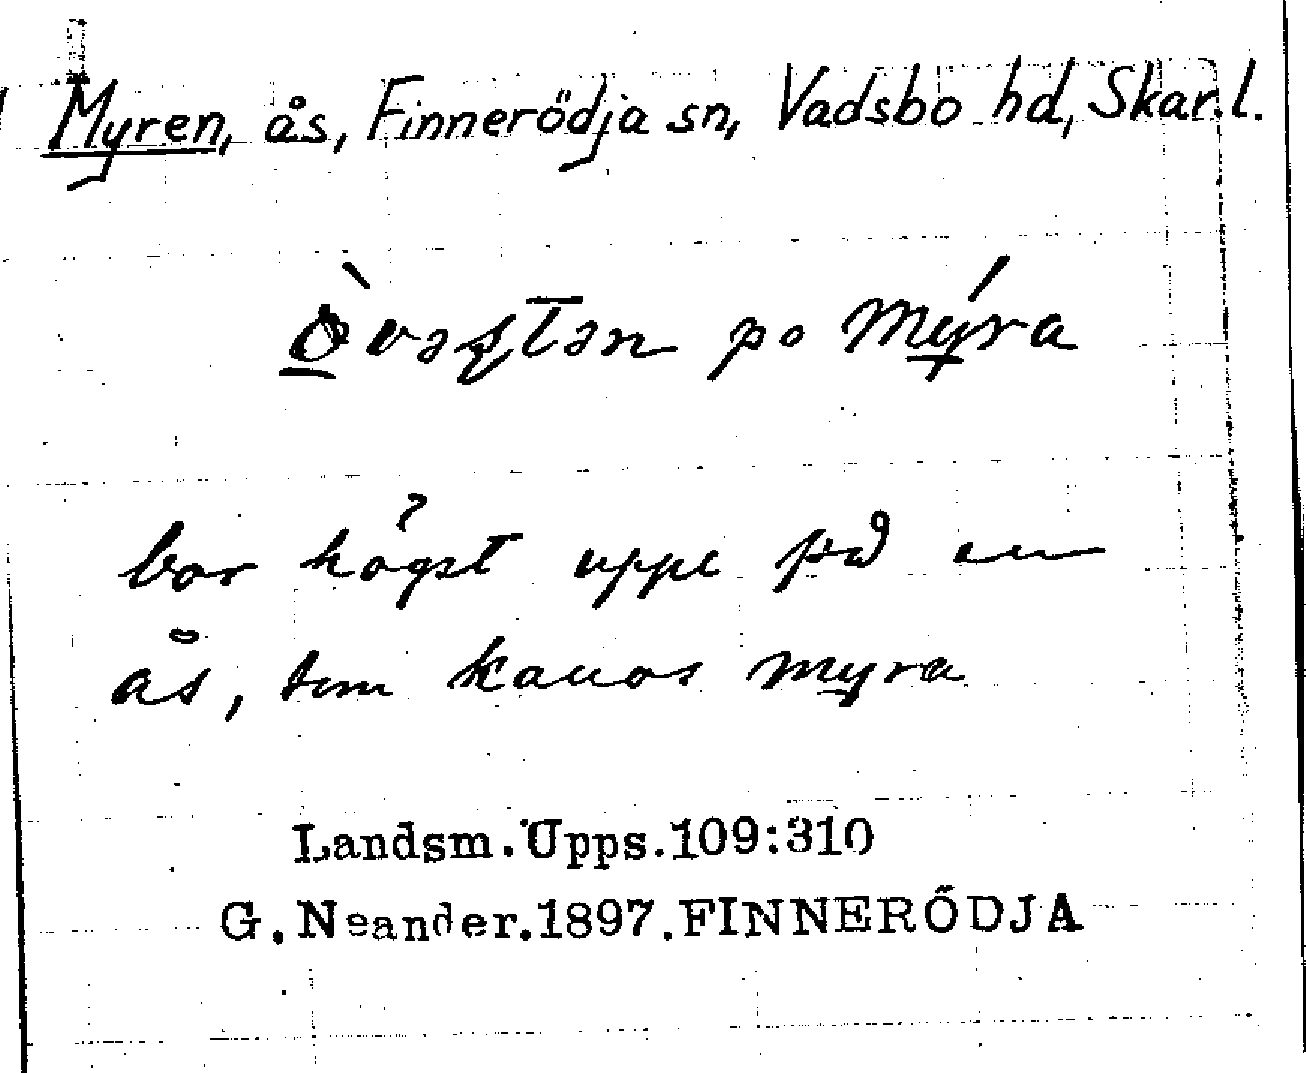 Myren, ås, Finnerödja sn, Vadsbo hd, Skar.l.
po Myra
bor högst uppe på en
ås, som kallas myra
Landsm.Upps.109:310
G.Neander.1897.FINNERÖDJA